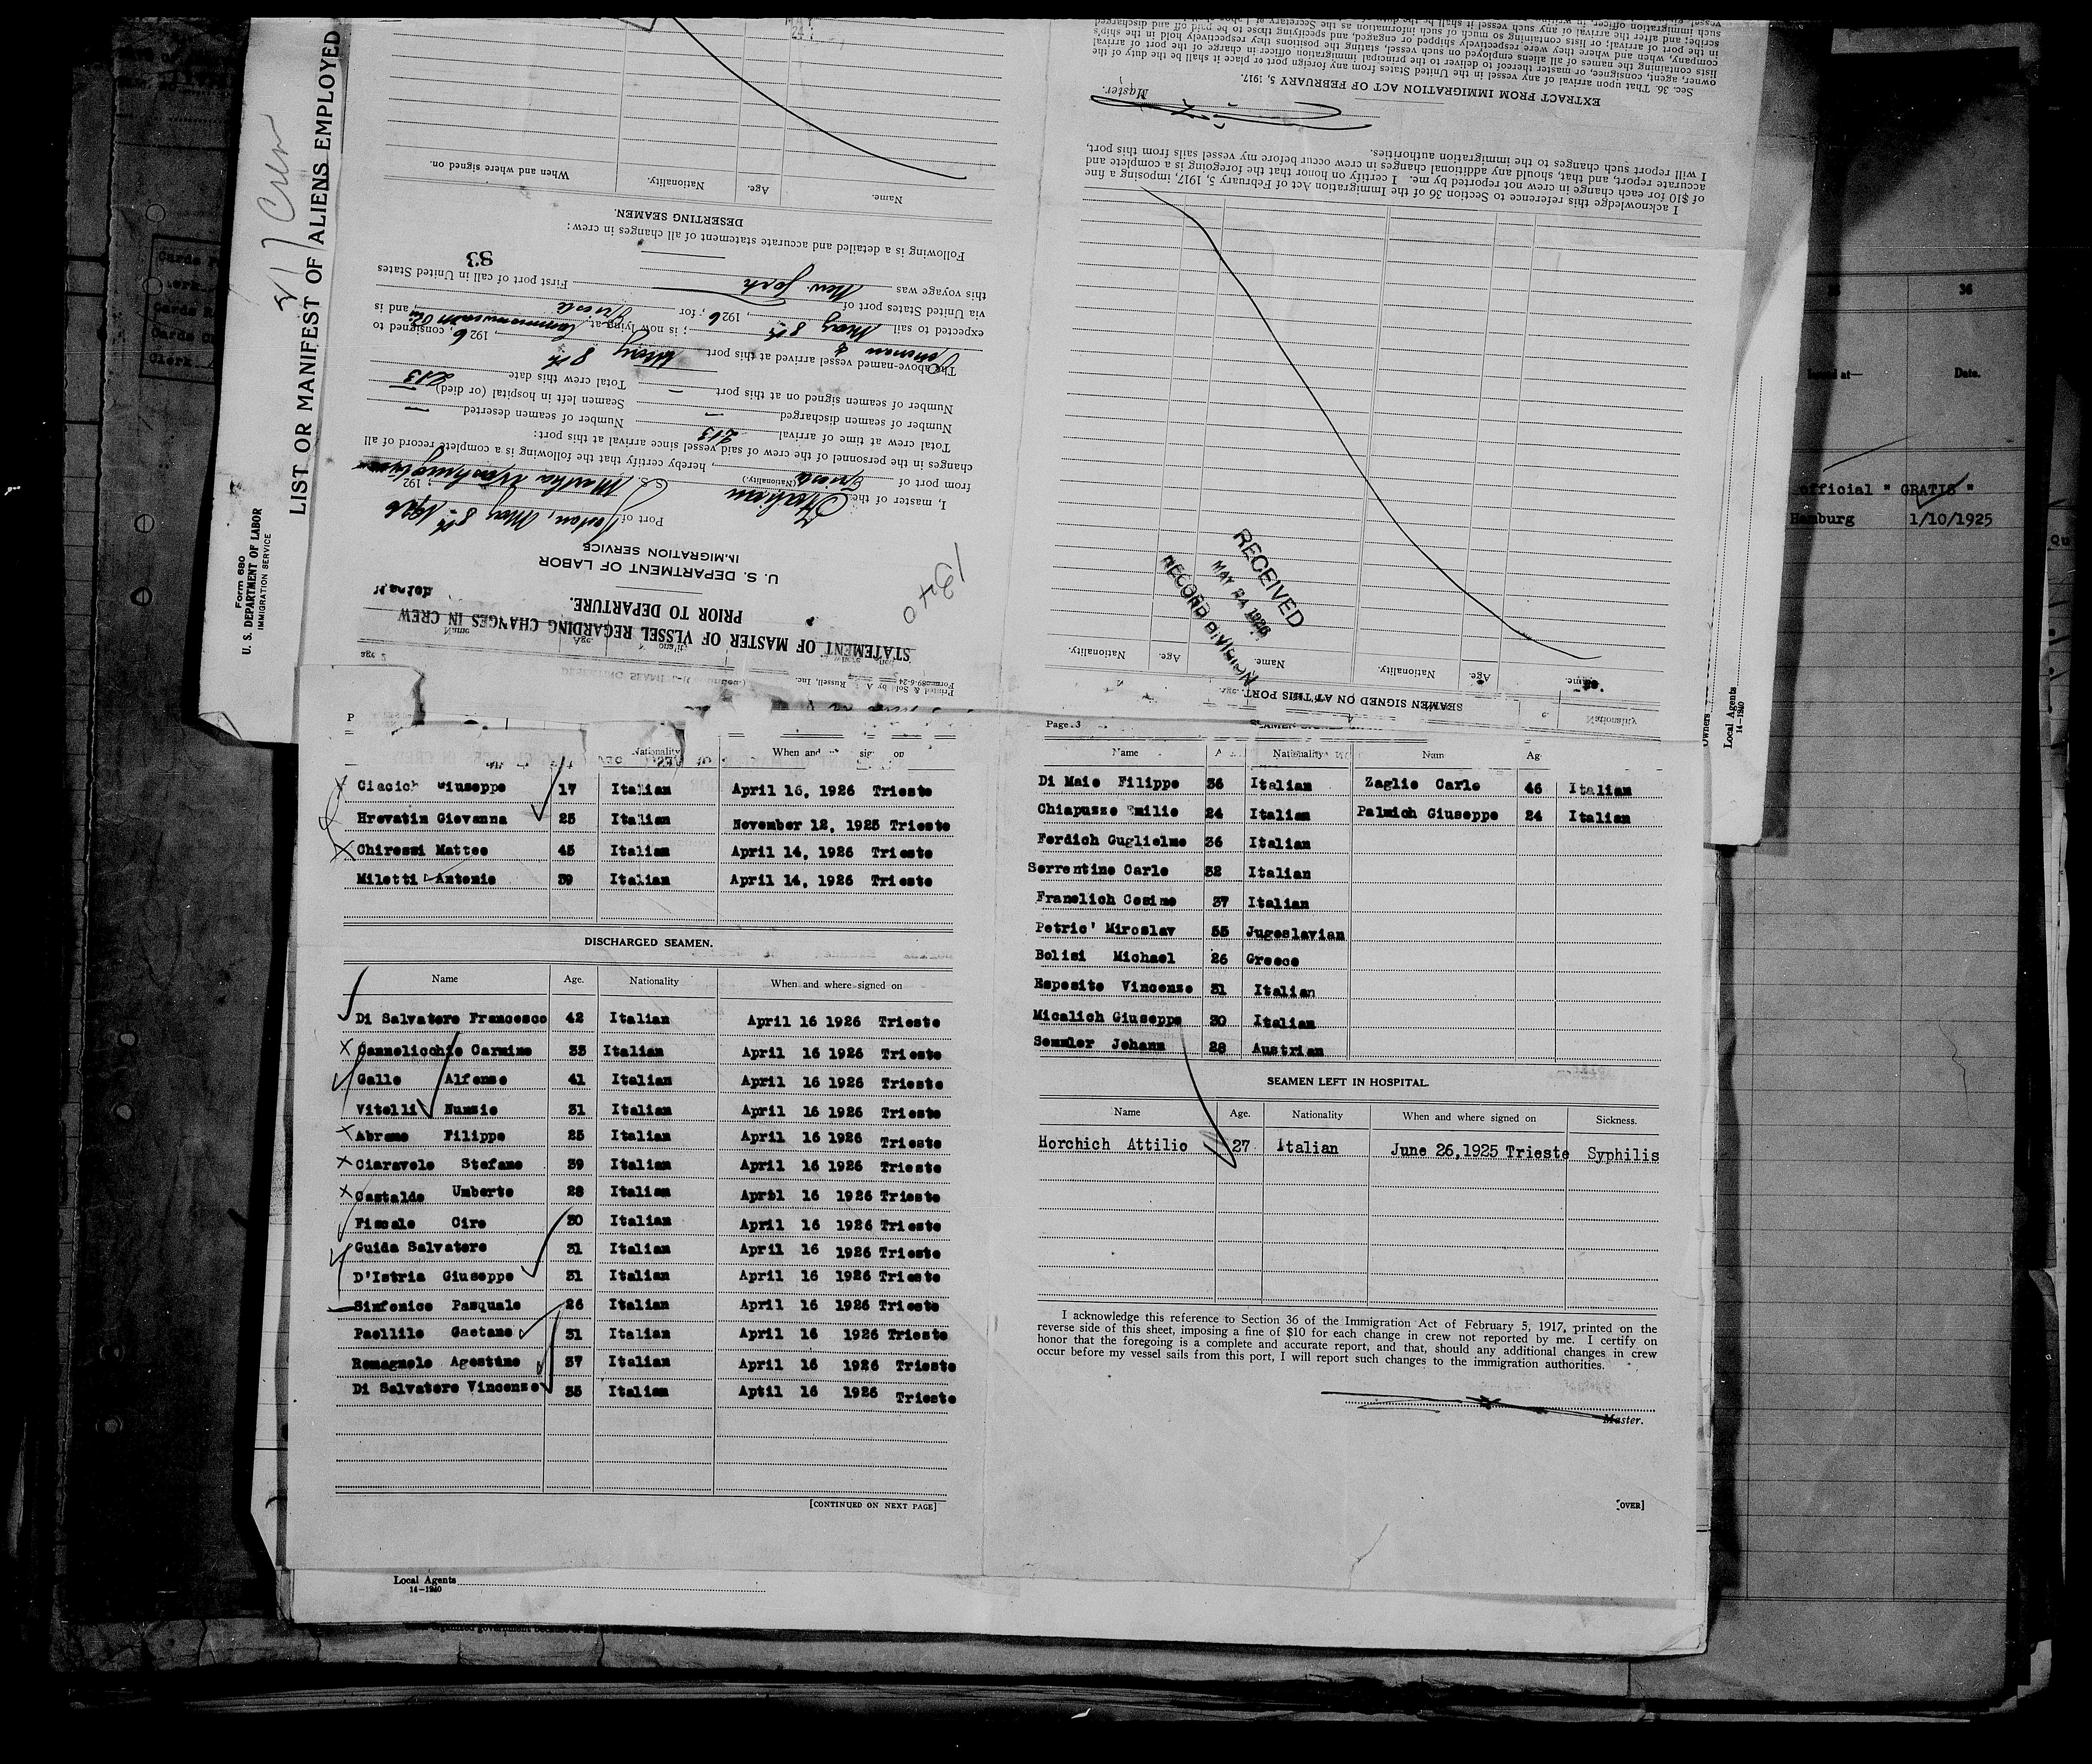 Form 680
U. S. DEPARTMENT OF LABOR
IMMIGRATION SERVICE
LIST OR MANIFEST OF ALIENS EMPLOYED
Crew
STATEMENT OF MASTER OF VESSEL REGARDING CHANGES IN CREW
PRIOR TO DEPARTURE.
U. S. DEPARTMENT OF LABOR
IMMIGRATION SERVICE
Port of Boston, May 8th 1926
I, master of the Italian (Nationality.) S.S. Martha Washington, 192
from of Trieste, hereby certify that the following is a complete record of all
changes in the personnel of the crew of said vessel since arrival at this port:
Total crew at time of arrival 213 Number of seamen deserted —
Number of seamen discharged — Seamen left in hospital (or died) —
Number of seamen signed on at this port — Total crew this date 213
The above-named vessel arrived at this port May 8th, 1926, consigned to
; is now lying at Commonwealth, and is
expected to sail May 8th, 1926, for Trieste
via United States port of New York
this voyage was First port of call in United States
83
Following is a detailed and accurate statement of all changes in crew:
DESERTING SEAMEN.
Name. Age. Nationality. When and where signed on.
1240
SEAMEN SIGNED ON AT THIS PORT.
Name. Age. Nationality. Name. Age. Nationality.
RECEIVED
MAY 24 1926
RECORD DIVISION
I acknowledge this reference to Section 36 of the Immigration Act of February 5, 1917, imposing a fine
of $10 for each change in crew not reported by me. I certify on honor that the foregoing is a complete and
accurate report, and that, should any additional changes in crew occur before my vessel sails from this port,
I will report such changes to the immigration authorities.
Master.
EXTRACT FROM IMMIGRATION ACT OF FEBRUARY 5, 1917.
Sec. 36. That upon arrival of any vessel in the United States from any foreign port or place it shall be the duty of the
owner, agent, consignee, or master thereof to deliver to the principal immigration officer in charge of the port of arrival
lists containing the names of all aliens employed on such vessel, stating the positions they respectively hold in the ship's
company, when and where they were respectively shipped or engaged, and specifying those to be paid off and discharged
in the port of arrival; or lists containing so much of such information as the Secretary of Labor shall
Nationality When and sig on
Ciacich Giuseppe 17 Italian April 16, 1926 Trieste
Hrevatin Giovanna 25 Italian November 12, 1925 Trieste
Chiressi Matteo 45 Italian April 14, 1926 Trieste
Miletti Antonio 39 Italian April 14, 1926 Trieste
DISCHARGED SEAMEN.
Name Age. Nationality When and where signed on
Di Salvatore Francesco 42 Italian April 16 1926 Trieste
Cannelicchio Carmine 33 Italian April 16 1926 Trieste
Galle Alfonso 41 Italian April 16 1926 Trieste
Vitelli Nunzio 31 Italian April 16 1926 Trieste
Abrame Filippo 25 Italian April 16 1926 Trieste
Ciaravole Stefano 39 Italian April 16 1926 Trieste
Castaldo Umberto 28 Italian April 16 1926 Trieste
Fiscale Ciro 30 Italian April 16 1926 Trieste
Guida Salvatore 31 Italian April 16 1926 Trieste
D'Istria Giuseppe 31 Italian April 16 1926 Trieste
Sinfonico Pasquale 26 Italian April 16 1926 Trieste
Paellilo Gaetano 31 Italian April 16 1926 Trieste
Romagnolo Agostino 37 Italian April 16 1926 Trieste
Di Salvatore Vincenzo 35 Italian Aptil 16 1926 Trieste
[CONTINUED ON NEXT PAGE]
Page 3
Name A Nationality Nam Ag
Di Maio Filippo 36 Italian Zaglio Carlo 46 Italian
Chiapuzzo Emilio 24 Italian Palmich Giuseppe 24 Italian
Ferdich Guglielmo 36 Italian
Serrentino Carlo 32 Italian
Franelich Cosimo 37 Italian
Petric' Miroslav 55 Jugoslavian
Bolisi Michael 26 Greece
Esposito Vincenzo 31 Italian
Micalich Giuseppe 30 Italian
Semmler Johann 28 Austrian
SEAMEN LEFT IN HOSPITAL.
Name Age. Nationality When and where signed on Sickness.
Horchich Attilio 27 Italian June 26,1925 Trieste Syphilis
I acknowledge this reference to Section 36 of the Immigration Act of February 5, 1917, printed on the
reverse side of this sheet, imposing a fine of $10 for each change in crew not reported by me. I certify on
honor that the foregoing is a complete and accurate report, and that, should any additional changes in crew
occur before my vessel sails from this port, I will report such changes to the immigration authorities.
Master.
[OVER]
Local Agents
14—1240
Owners
Local Agents
14—1240
36
Issued at— Date.
official " GRATIS "
Hamburg 1/10/1925
Qu